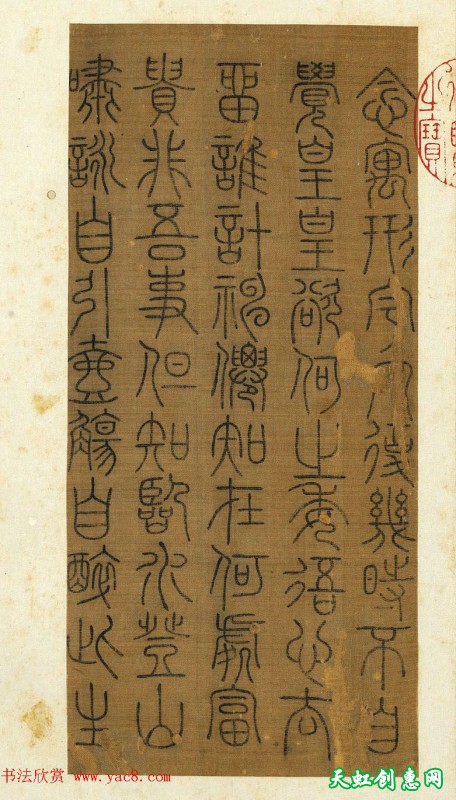 念寓形宇內復幾時不自
覺皇皇欲何之委吾心去
留誰計神僊知在何處富
貴非吾事但知臨水登山
嘯詠自引壺觴自醉此生
之寶
书法欣赏 www.yac8.com
天虹创惠网